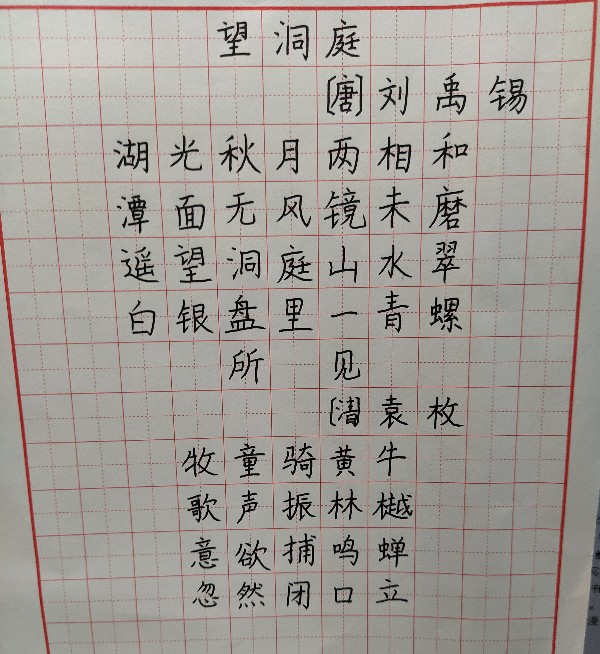 望洞庭
[唐]刘禹锡
湖光秋月两相和
潭面无风镜未磨
遥望洞庭山水翠
白银盘里一青螺
所见
[清]袁枚
牧童骑黄牛
歌声振林樾
意欲捕鸣蝉
忽然闭口立